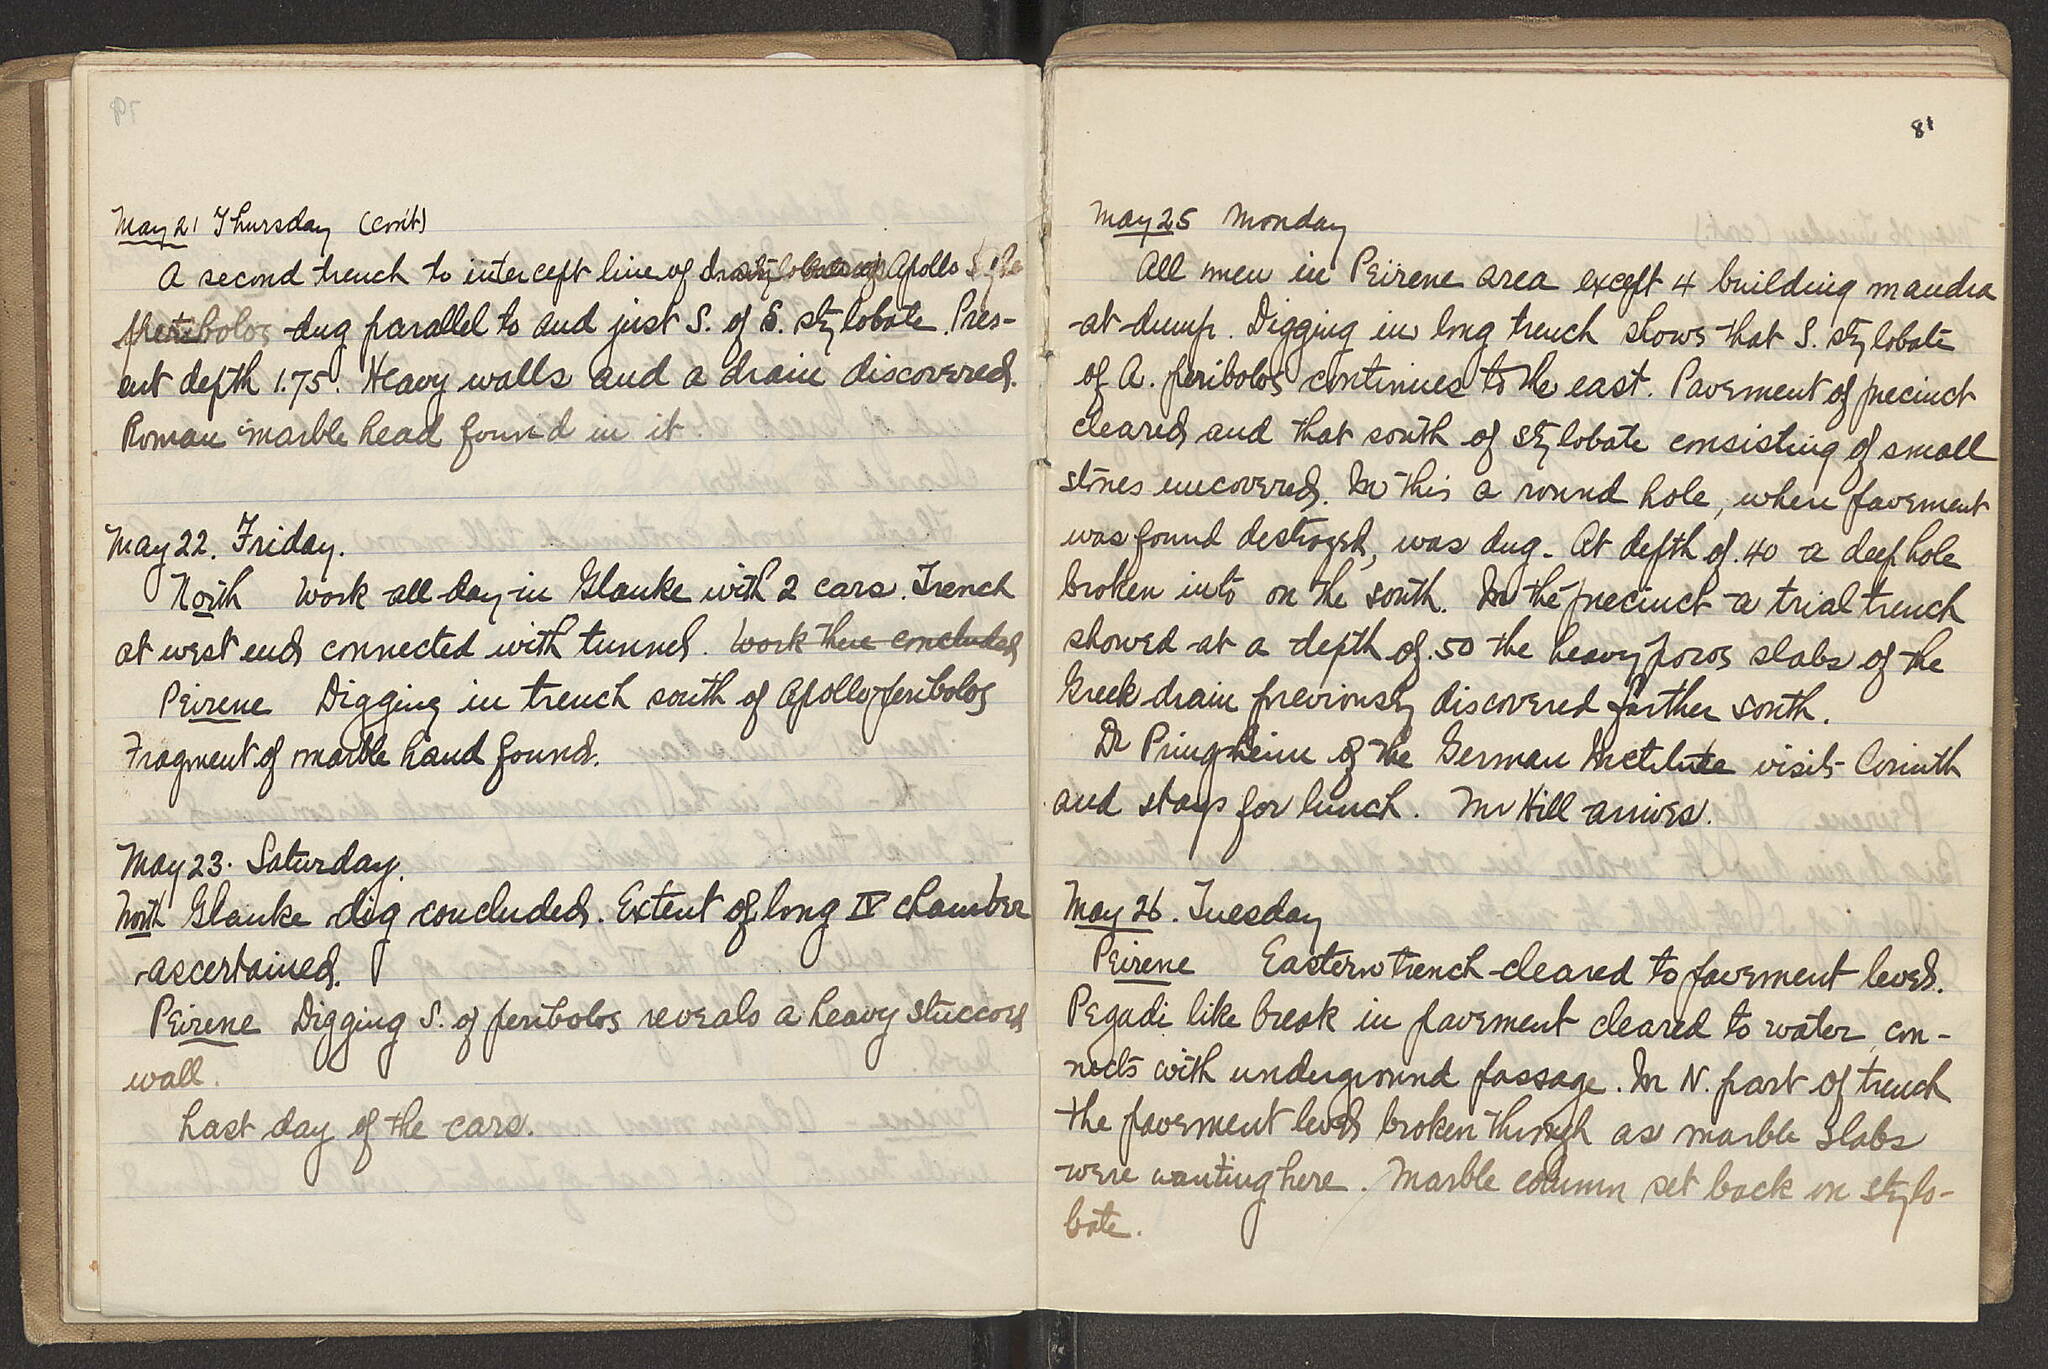 May 21 Thursday (con't)
A second trench to intercept line of Apollo
peribolos dug parallel to and just S. of S. stylobate. Pres-
ent depth 1.75. Heavy walls and a drain discovered.
Roman marble head found in it.
May 22. Friday.
North Work all day in Glauke with 2 cars. Trench
at west end connected with tunnel. Work there concluded
Peirene Digging in trench south of Apollo peribolos
Fragment of marble hand found.
May 23. Saturday.
North Glauke dig concluded. Extent of long IV chamber
ascertained.
Peirene Digging S. of peribolos reveals a heavy stuccoed
wall.
Last day of the cars.
81
May 25 Monday
All men in Peirene area except 4 building mandra
at dump. Digging in long trench shows that S. stylobate
of A. peribolos continues to the east. Pavement of precinct
cleared and that south of stylobate consisting of small
stones uncovered. In this a round hole, where pavement
was found destroyed, was dug. At depth of .40 a deep hole
broken into on the south. In the precinct a trial trench
showed at a depth of .50 the heavy poros slabs of the
Greek drain previously discovered farther south.
Dr Pringsheim of the German Institute visits Corinth
and stays for lunch. Mr Hill arrives.
May 26. Tuesday
Peirene Eastern trench cleared to pavement level.
Pegadi like break in pavement cleared to water, con-
nects with underground passage. In N. part of trench
the pavement level broken through as marble slabs
were wanting here. Marble column set back on stylo-
bate.